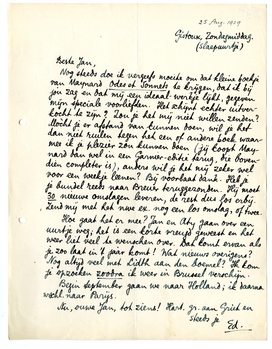 25 Aug. 1929
Gistoux, Zondagmiddag.
(slaapuurtje)
Beste Jan,
Nog steeds doe ik vergeefs moeite om dat kleine boekje
van Maynard Odes et Sonnets te krijgen, dat ik bij
jou zag en dat mij een ideaal-werkje lijkt, gegeven
mijn speciale voorliefden. Het schijnt echter uitver-
kocht te zijn? Zou je het mij niet willen zenden?
Mocht je er afstand van kunnen doen, wil je het
dan niet ruilen tegen het een of andere boek waar-
mee ik je plezier zou kunnen doen (jij koopt May-
nard dan wel in een Garnier-editie terug, die boven-
dien completer is), anders wil je het mij zeker wel
voor een weekje leenen? Bij voorbaat dank. Heb je
je bundel reeds naar Breuer teruggezonden. Hij moet
30 nieuwe omslagen leveren, de rest dus los erbij.
Zend mij met het nawoord ex. nog een los omslag, of twee.
Hoe gaat het er mee? Jan en Aty gaan over een
uurtje weg; het is een korte vreugd geweest en het
weer liet veel te wenschen over. Dat komt ervan als
je zoo laat in 't jaar komt! Wat nieuws overigens?
Nog altijd veel met
aan den boemel? Ik kom
je opzoeken zoodra ik weer in Brussel verschijn.
Begin September gaan we naar Holland, ik daarna
wschl. naar Parijs.
Nu, ouwe Jan, tot ziens! Hart. gr. van
en
steeds je
Ed.